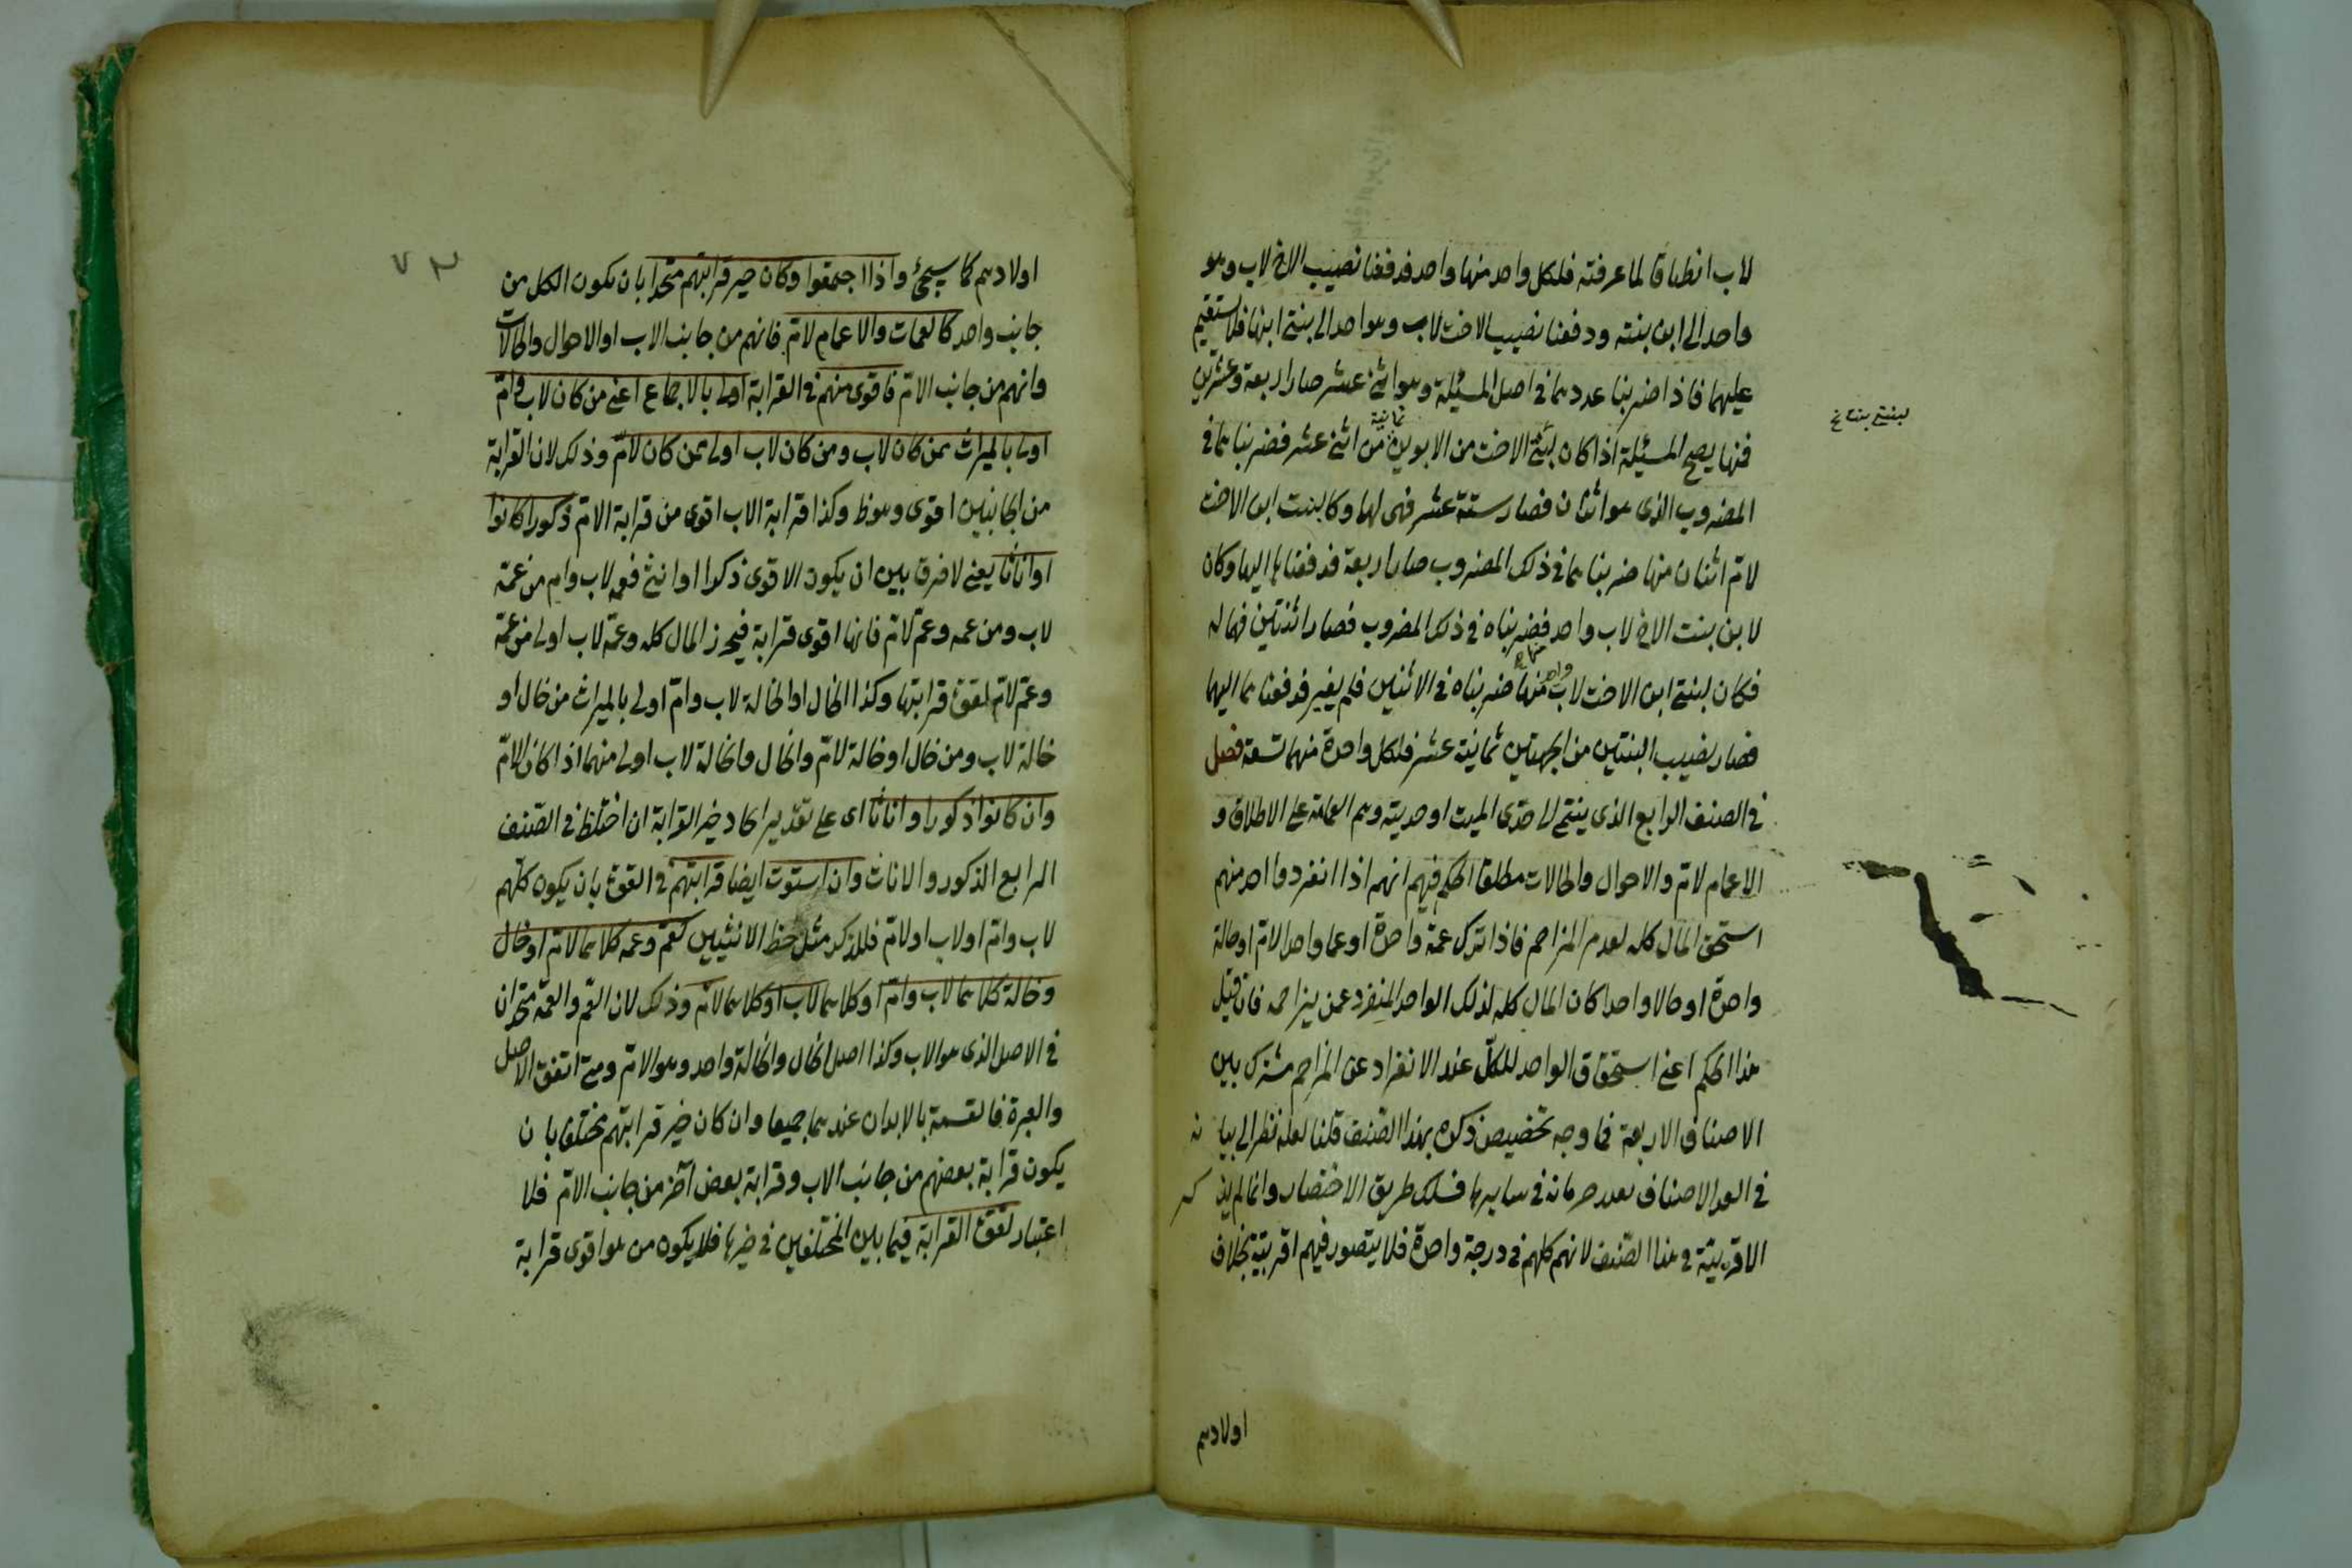 لاب انطباقا لما عرفته فلكل واحد منها واحد فدفعنا نصيب الاخ لاب وهو
واحد الى ابن بنته ودفعنا نصيب الاخت لاب وهو احد الى بنتى ابنها فلا يستقيم
عليهما فاذا ضربنا عددهما فى اصل المسئلة وهو اثنى عشر صار اربعة وعشرين
فمنها يصح المسئلة اذا كان لبنتى الاخت من الابوين ثمانية من اثنى عشر فضربناها فى
لبنتى بنت خ
المضروب الذى هو اثنان فصار ستة عشر فهى لها وكا لبنت ابن الاخت
لام اثنان منها ضربناهما فى ذلك المضروب صار اربعة فدفعناها اليها وكان
لابن بنت الاخ لاب واحد فضربناه فى ذلك المضروب فصار اثنتين فهما له
فكان لبنتى ابن الاخت لاب واحد منها ضربناه فى الاثنين فلم يغير فدفعناهما اليهما
فصار نصيب البنتين من الجهتين ثمانية عشر فلكل واحدة منهما تسعة فصل
فى الصنف الرابع الذى ينتمى الى جدى الميت او جديته وهم العمات على الاطلاق و
الاعمام لام والاخوال والخالات مطلقا الحكم فيهم انهم اذا انفرد واحد منهم
استحق المال كله لعدم المزاحم فاذا ترك عمة واحدة او عما واحدا لام او خالة
واحدة او خالا واحدا كان المال كله لذلك الواحد المنفرد عمن يزاحمه فان قيل
هذا الحكم اعنى استحقاق الواحد للكل عند الانفراد عن المزاحم مشترك بين
الاصناف الاربعة فما وجه تخصيص ذكره بهذا الصنف قلنا لعله نظر الى بيا نه
فى الاصناف بعد فى سايرها فسلك طريق الاختصار وانما لم يذ كر
الاقربية فى هذا الصنف لانهم كلهم فى درجة واحدة فلا يتصور فيهم اقربية بخلاف
اولادهم
٧٣
اولادهم كما سيجئ واذا اجتمعوا وكان حيز قرابتهم متحدا بان يكون الكل من
جانب واحد كالعمات والاعمام لام فانهم من جانب الاب او الاخوال والخالات
وانهم من جانب الام فاقوى منهم فى القرابة اولى بالاجماع اعنى من كان لاب وام
اولى بالميراث ممن كان لاب ومن كان لاب اولى ممن كان لام وذلك لان القرابة
من الجانبين اقوى وهو ظ وكذا قرابة الاب اقوى من قرابة الام ذكورا كانوا
او اناثا يعنى لا فرق بين ان يكون الاقوى ذكرا او انثى فعمة لاب وام من عمة
لاب ومن عمه وعم لام فانها اقوى قرابة فيحرز المال كله وعمة لاب اولى من عمة
وعم لام لقوة قرابتها وكذا الخال او الخالة لاب وام اولى بالميراث من خال او
خالة لاب ومن خال او خالة لام والخال والخالة لاب اولى منهما اذا كانا لام
وان كانوا ذكورا واناثا اى على تقدير اتحاد حيز القرابة ان اختلط فى الصنف
الرابع الذكور والاناث وان استوت ايضا قرابتهم فى القوة بان يكون كلهم
لاب وام او لاب او لام فللذكر مثل حظ الانثيين كعم وعمه كلاهما لام او خال
وخالة كلاهما لاب وام او كلاهما لاب او كلاهما لام وذلك لان العم والعمة متحدان
فى الاصل الذى هو الاب وكذا اصل الخال والخالة واحد وهو الام ومتى اتفق الاصل
والعبرة فالقسمة بالابدان عندهما جميعا وان كان حيز قرابتهم مختلفا با ن
يكون قرابة بعضهم من جانب الاب وقرابة بعض آخر من جانب الام فلا
اعتبار لقوة القرابة فيما بين المختلفين فى حيزها فلا يكون من هو اقوى قرابة